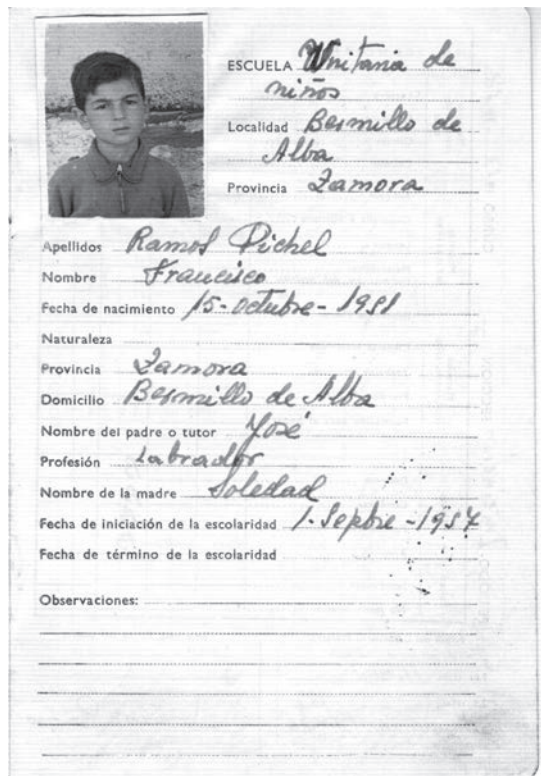 ESCUELA Unitaria de
niños
Localidad Bermillo de
Alba
Provincia Zamora
Apellidos Ramos Pichel
Nombre Francisco
Fecha de nacimiento 15-octubre-1951
Naturaleza
Provincia Zamora
Domicilio Bermillo de Alba
Nombre del padre o tutor José
Profesión Labrador
Nombre de la madre Soledad
Fecha de iniciación de la escolaridad 1-Sepbre-1957
Fecha de término de la escolaridad
Observaciones: